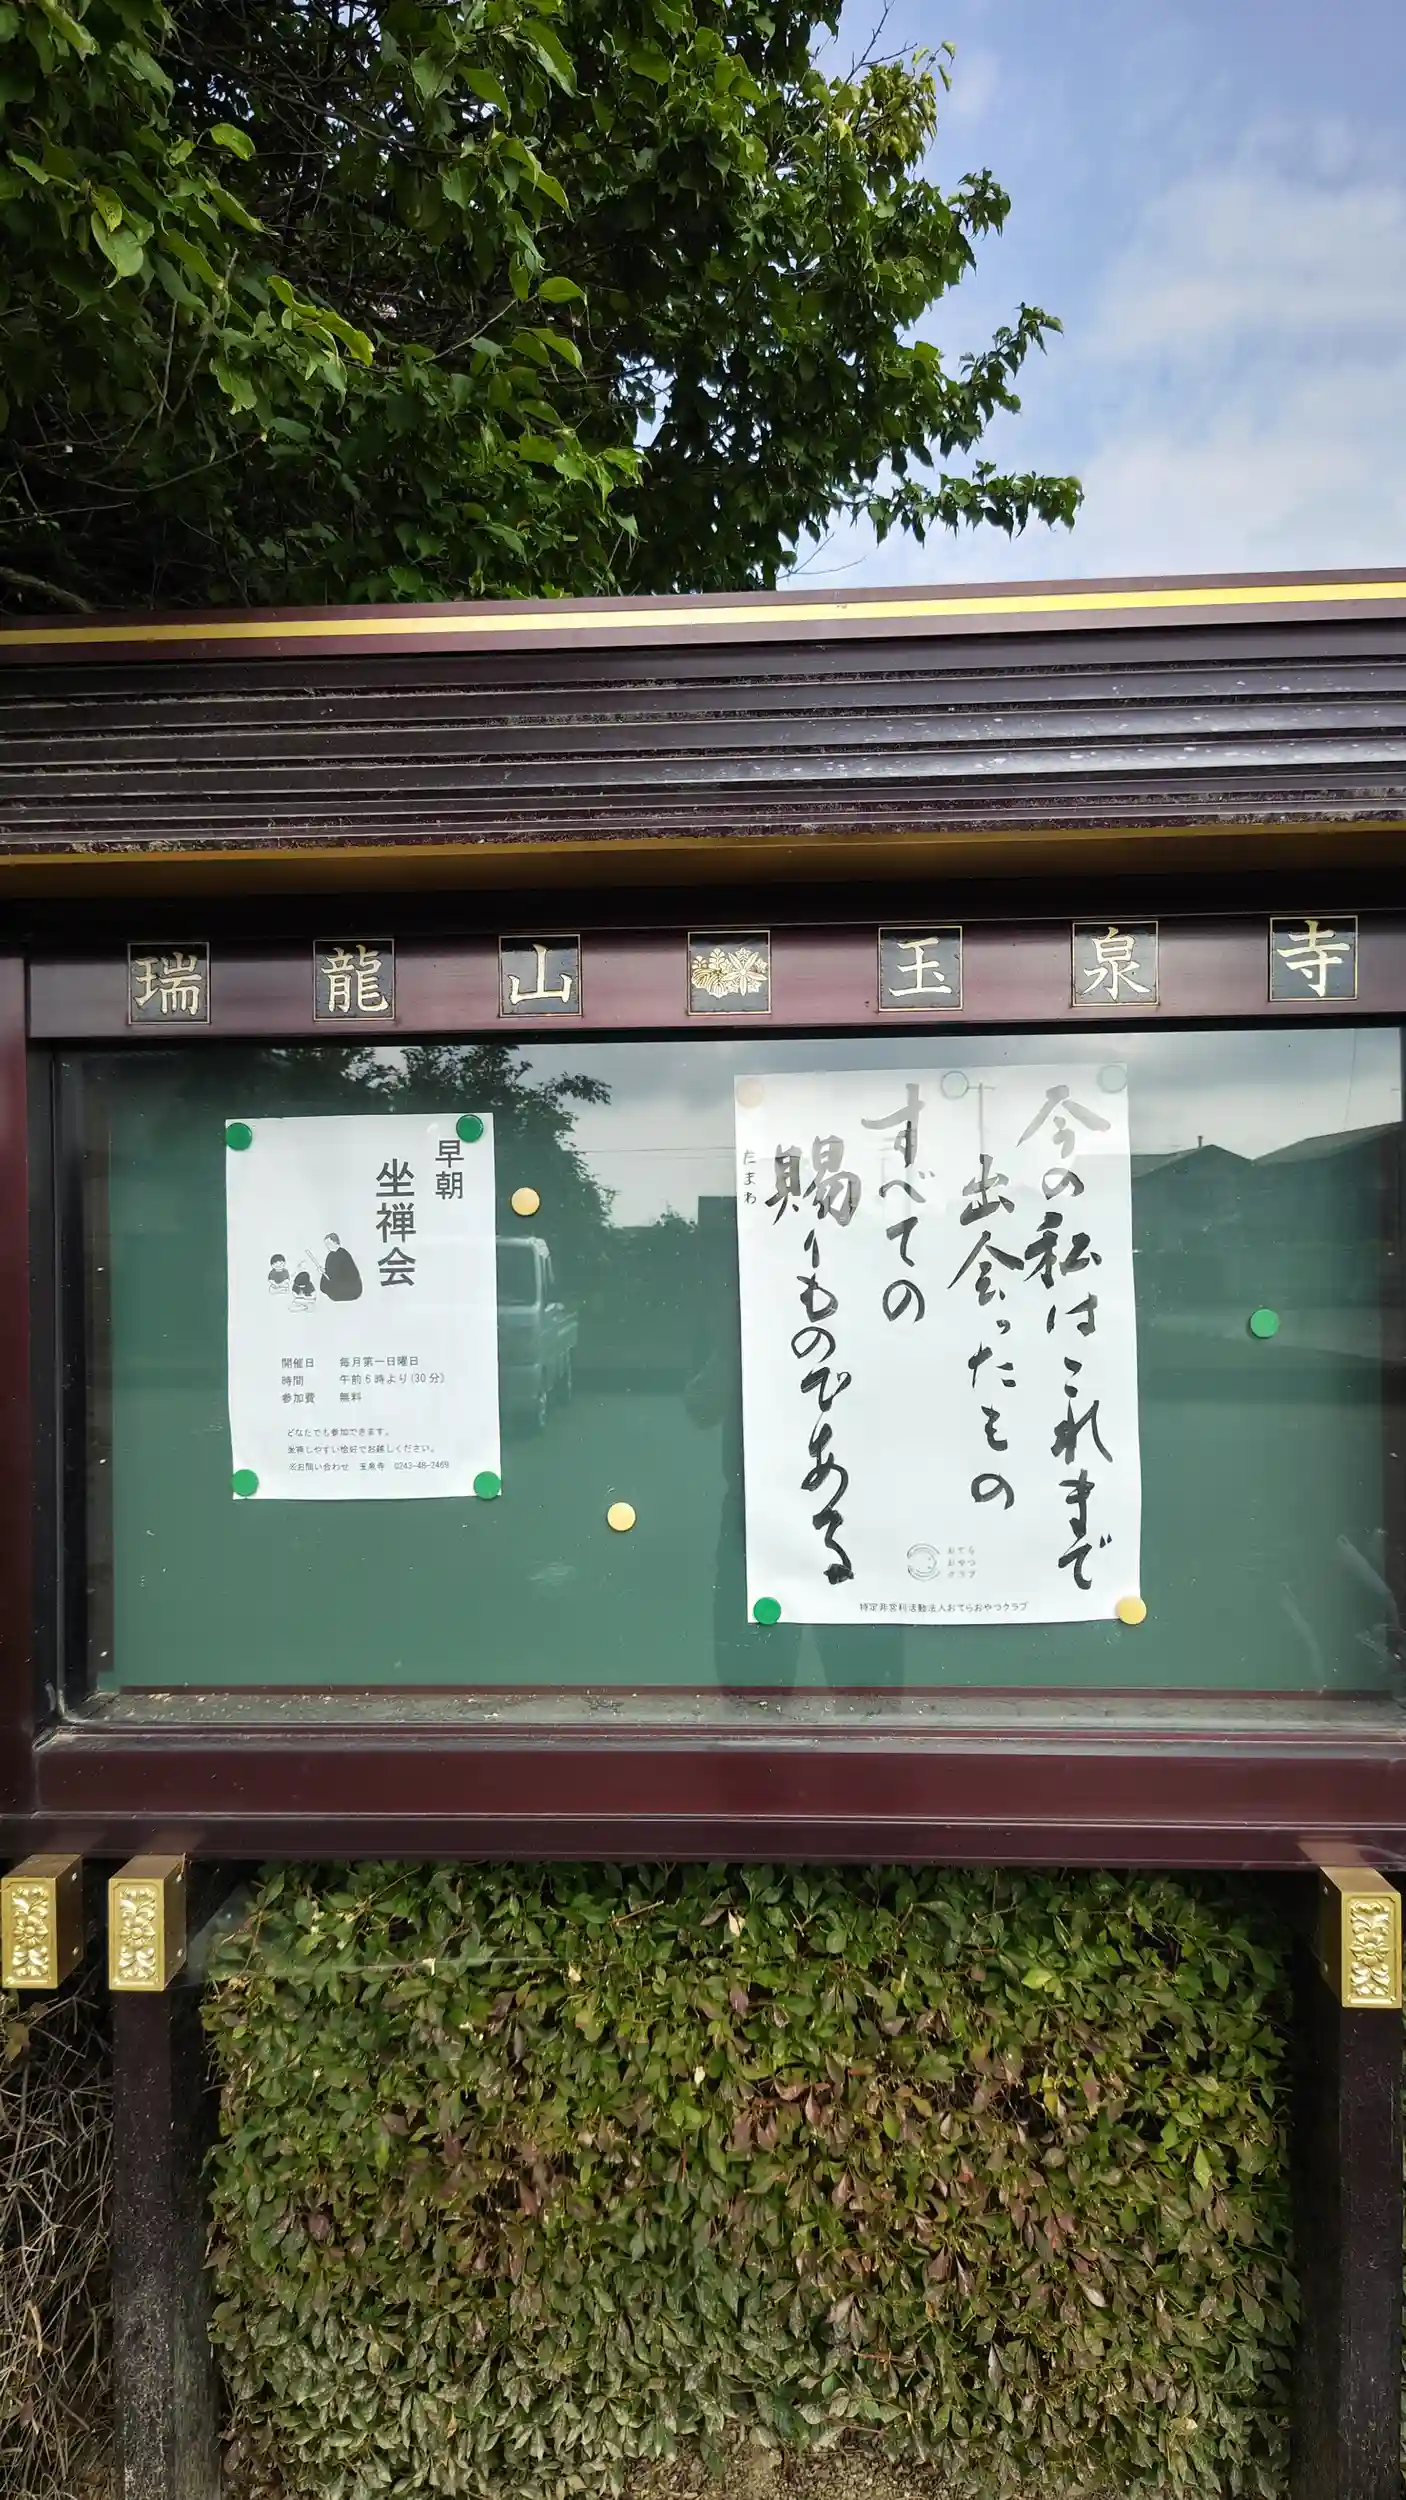 瑞龍山玉泉寺
今の私はこれまで
出会ったもの
すべての
賜りものである
たまわ
おてら
おやつ
クラブ
特定非営利活動法人おてらおやつクラブ
早朝
坐禅会
開催日 毎月第一日曜日
時間 午前6時より(30分)
参加費 無料
どなたでも参加できます。
坐禅しやすい恰好でお越しください。
※お問い合わせ 玉泉寺 0243-48-2469